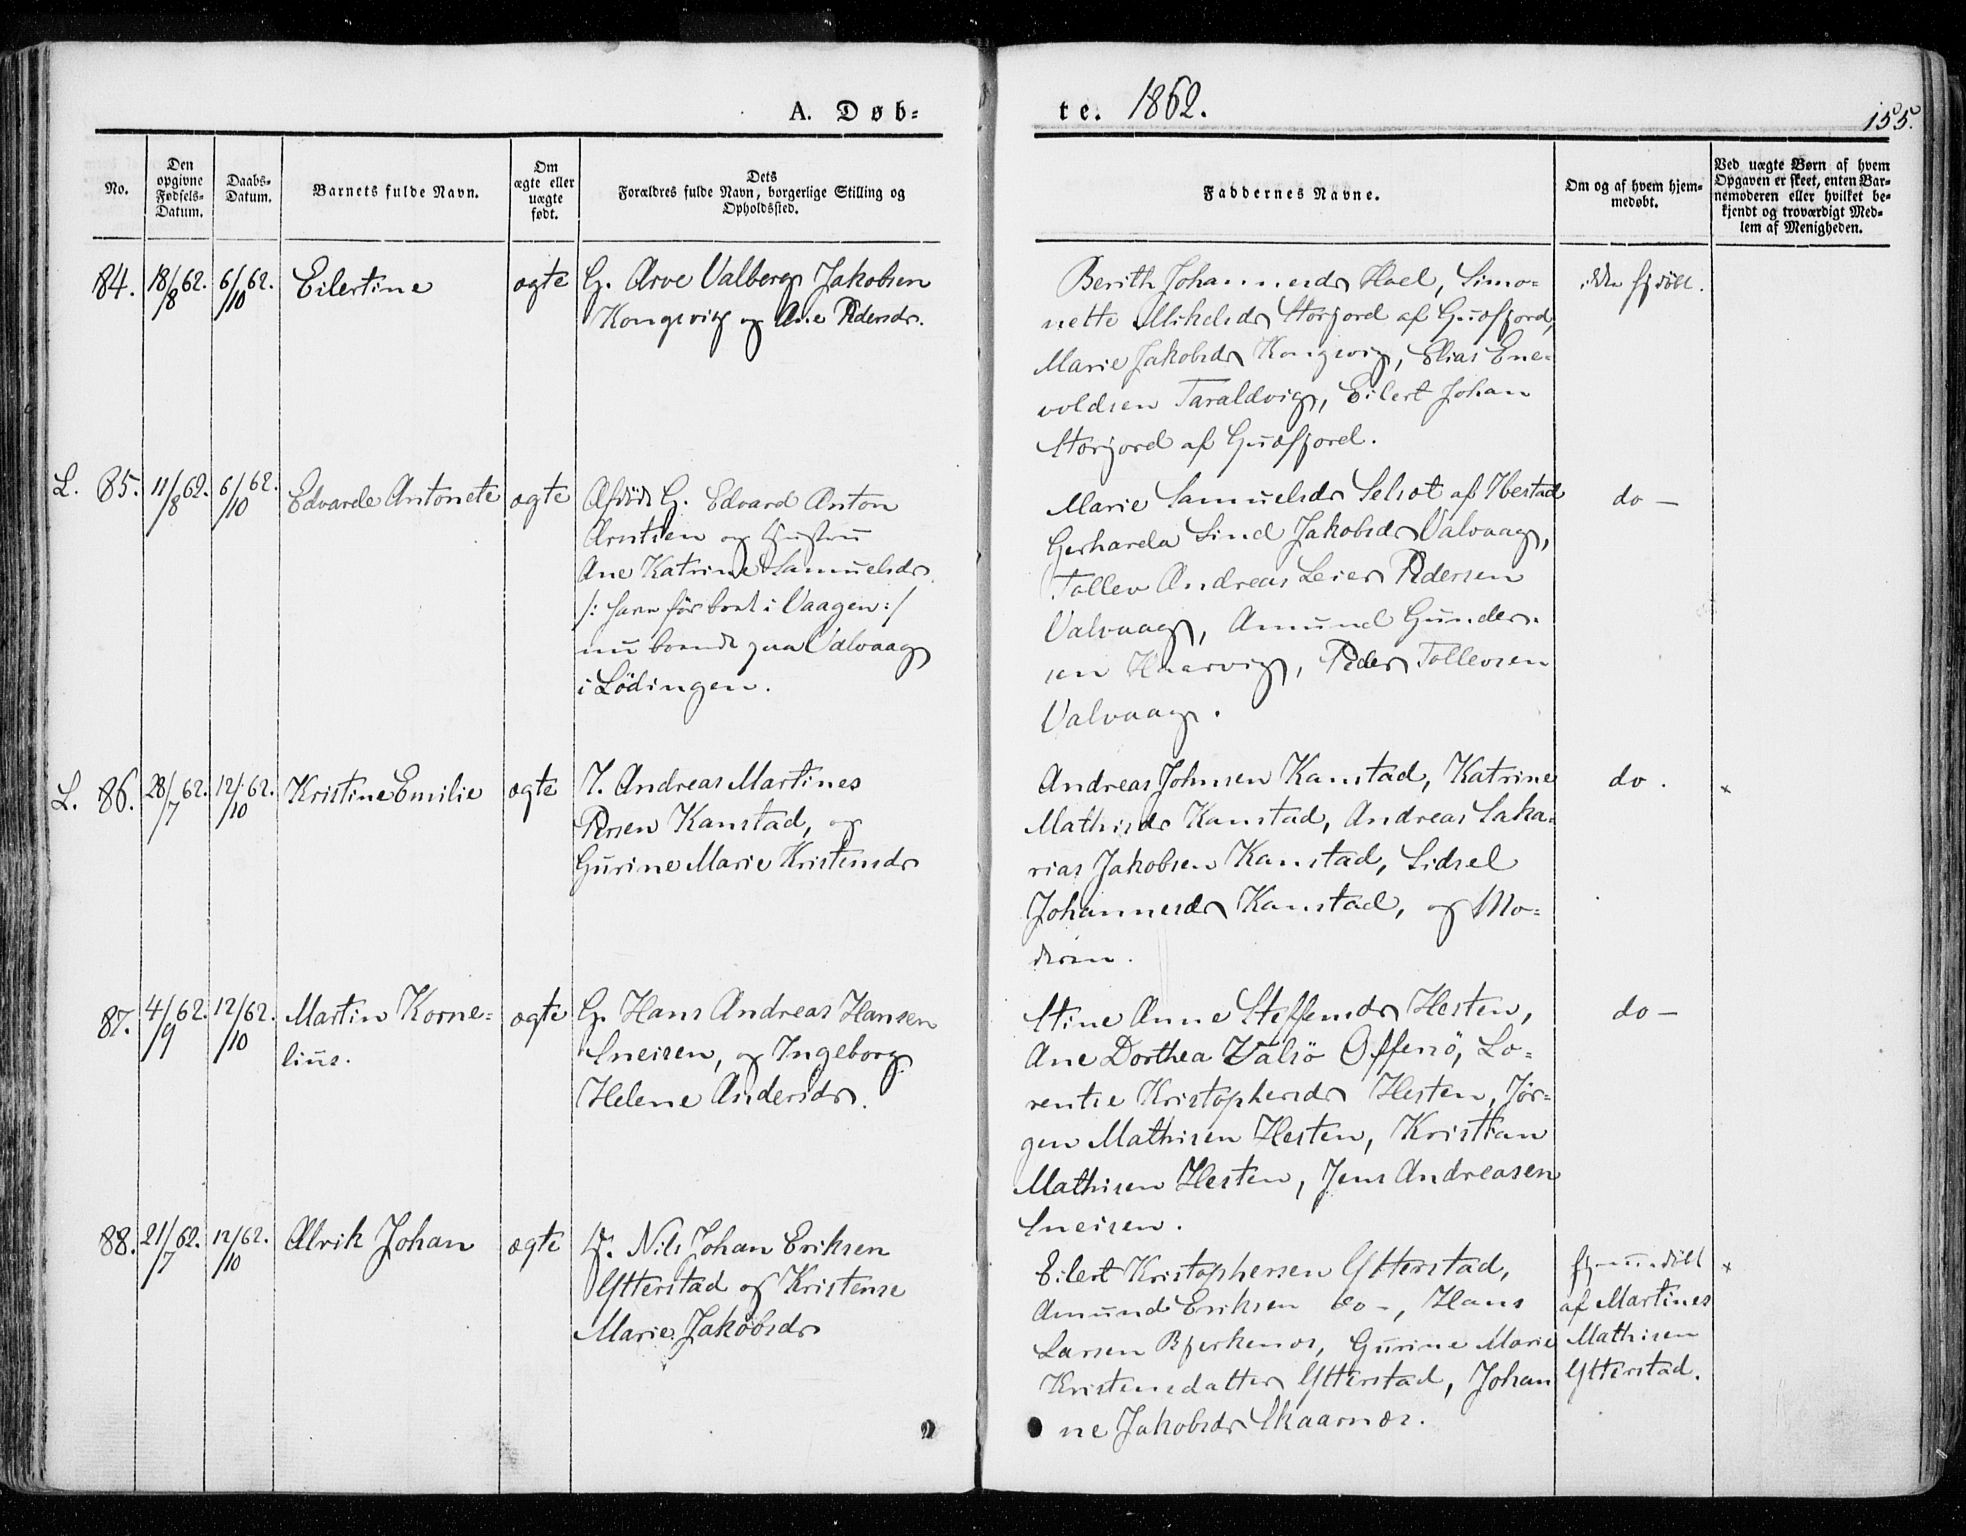 A. Døb-
te. 1862.
155.
No.
Den opgivne Fødsels-Datum.
Daabs-Datum.
Barnets fulde Navn.
Om ægte eller uægte født.
Dets Forældres fulde Navn, borgerlige Stilling og Opholdssted.
Faddernes Navne.
Om og af hvem hjem-medøbt.
Ved uægte Børn af hvem Opgaven er skeet, enten Bar-nemoderen eller hvilket be-kjendt og troværdigt Med-lem af Menigheden.
84. 18/8 62. 6/10 62. Eilertine ægte
G. Arve Valberg Jakobsen
Kongsvig og Ane Pedersdr.
Berith Johannesdr Hoel, Simo-
nette Mikelsdr Storjord af Gudfjord,
Marie Jakobsdr Kongsvig, Elias Ene-
voldsen Taraldvig, Eilert Johan
Storjord af Gudfjord.
ikke hjdøbt.
L. 85. 11/8 62. 6/10 62. Edvarde Antonete ægte
Afdøde G. Edvard Anton
Arntsen og Hustru
Ane Katrine Samuelsdr
/: havn før boet i Vaagen :/
nu boende paa Valvaag
i Lödingen.
Marie Samuelsdr Selset af Ibestad
Gerharda Sind Jakobsdr Valvaag,
Tollev Andreas Leier Pedersen
Valvaag, Amund Gunder-
sen Haarvig, Peder Tollevsen
Valvaag.
do —
L. 86. 28/7 62. 12/10 62. Kristine Emilie ægte
I. Andreas Martines
Persen Kanstad, og
Gurine Marie Kristensdr
Andreas Johnsen Kanstad, Katrine
Mathisdr Kanstad, Andreas Saka-
rias Jakobsen Kanstad, Sidsel
Johannesdr Kanstad, og Mo-
deren.
do.
×
87. 4/9 62. 12/10 62. Martin Korne-
lius.
ægte
G. Hans Andreas Hansen
Sneisen, og Ingeborg
Helene Andersdr.
Stine Anne Steffensdr Hesten,
Ane Dorthea Valsö Offersö, Lo-
rentse Kristophersdr Hesten, Jør-
gen Mathisen Hesten, Kristian
Mathisen Hesten, Jens Andreasen
Sneisen.
do —
88. 21/7 62. 12/10 62. Alrik Johan ægte
Nils Johan Eriksen
Ytterstad og Kristense
Marie Jakobsdr
Eilert Kristophersen Ytterstad,
Amund Eriksen do -, Hans
Larsen Bjerkenes, Gurine Marie
Kristensdatter Ytterstad, Johan
ne Jakobsdr Skaarnes.
hjemmedøbt
af Martines
Mathisen
Ytterstad.
×